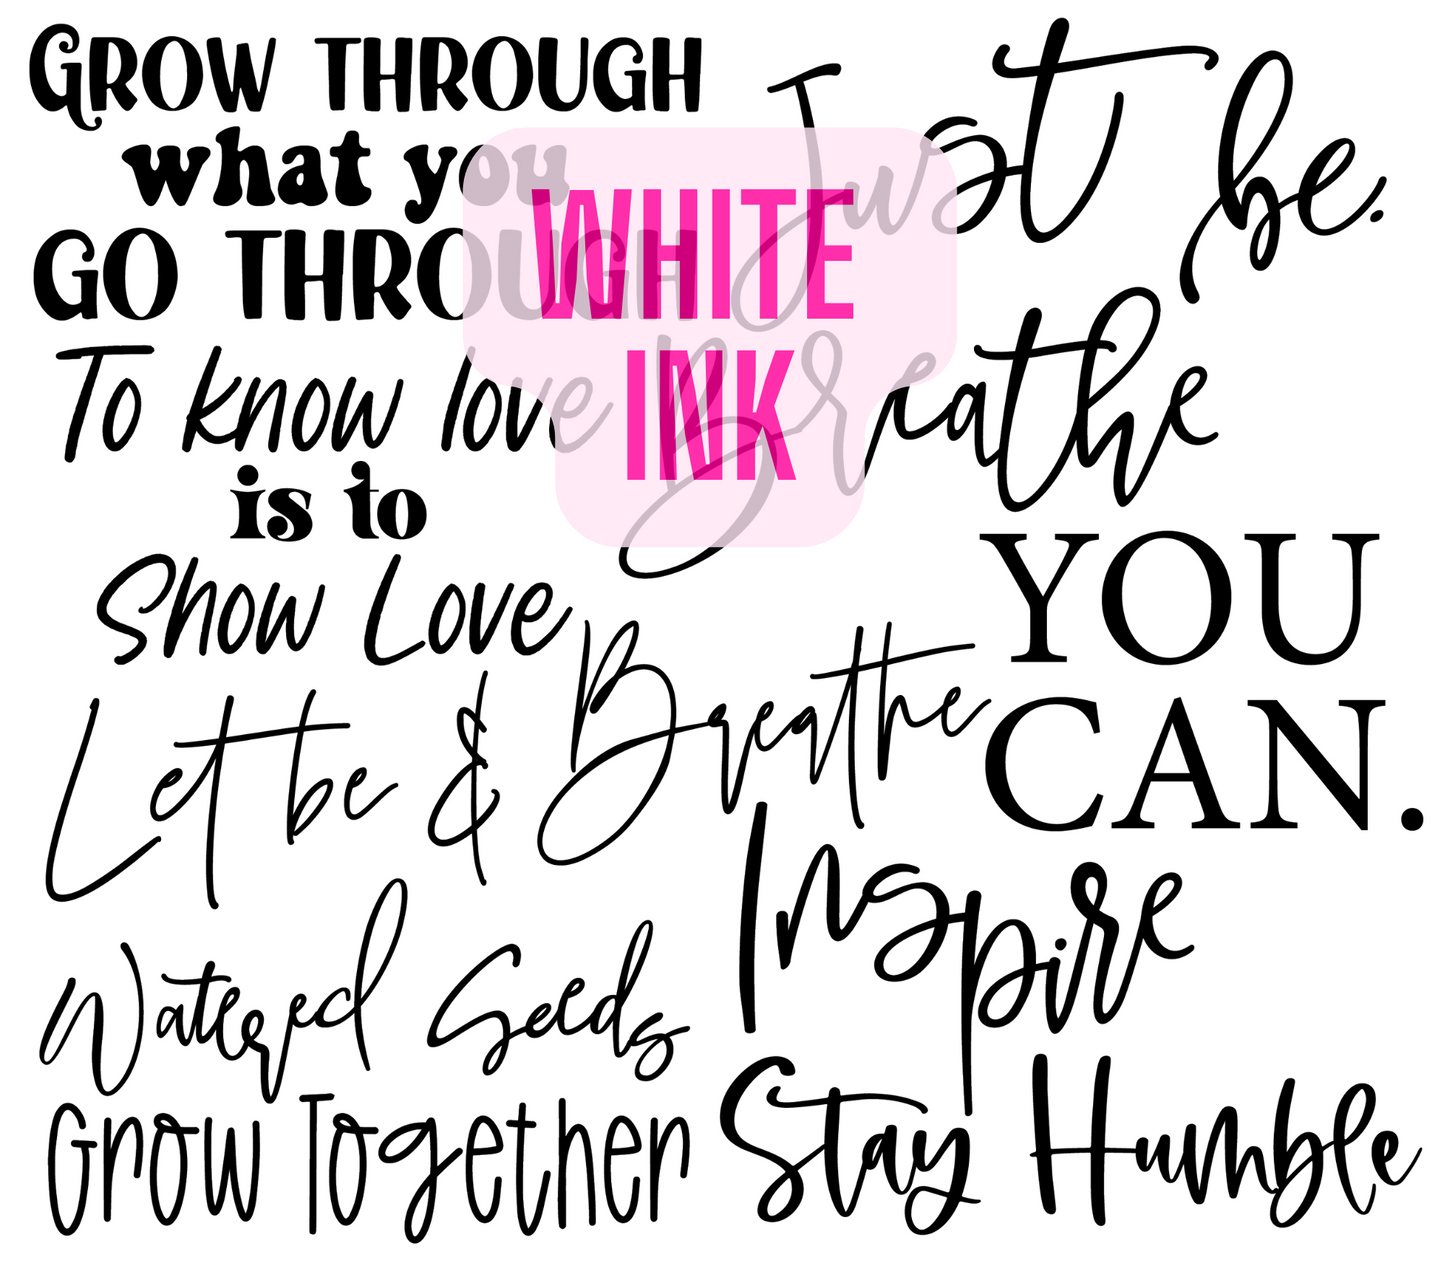 GROW THROUGH
what you
GO THROUGH
To know love
is to
Show Love
Let be & Breathe
Watered Seeds
Grow Together
Just be.
Breathe
YOU
CAN.
Inspire
Stay Humble
WHITE
INK